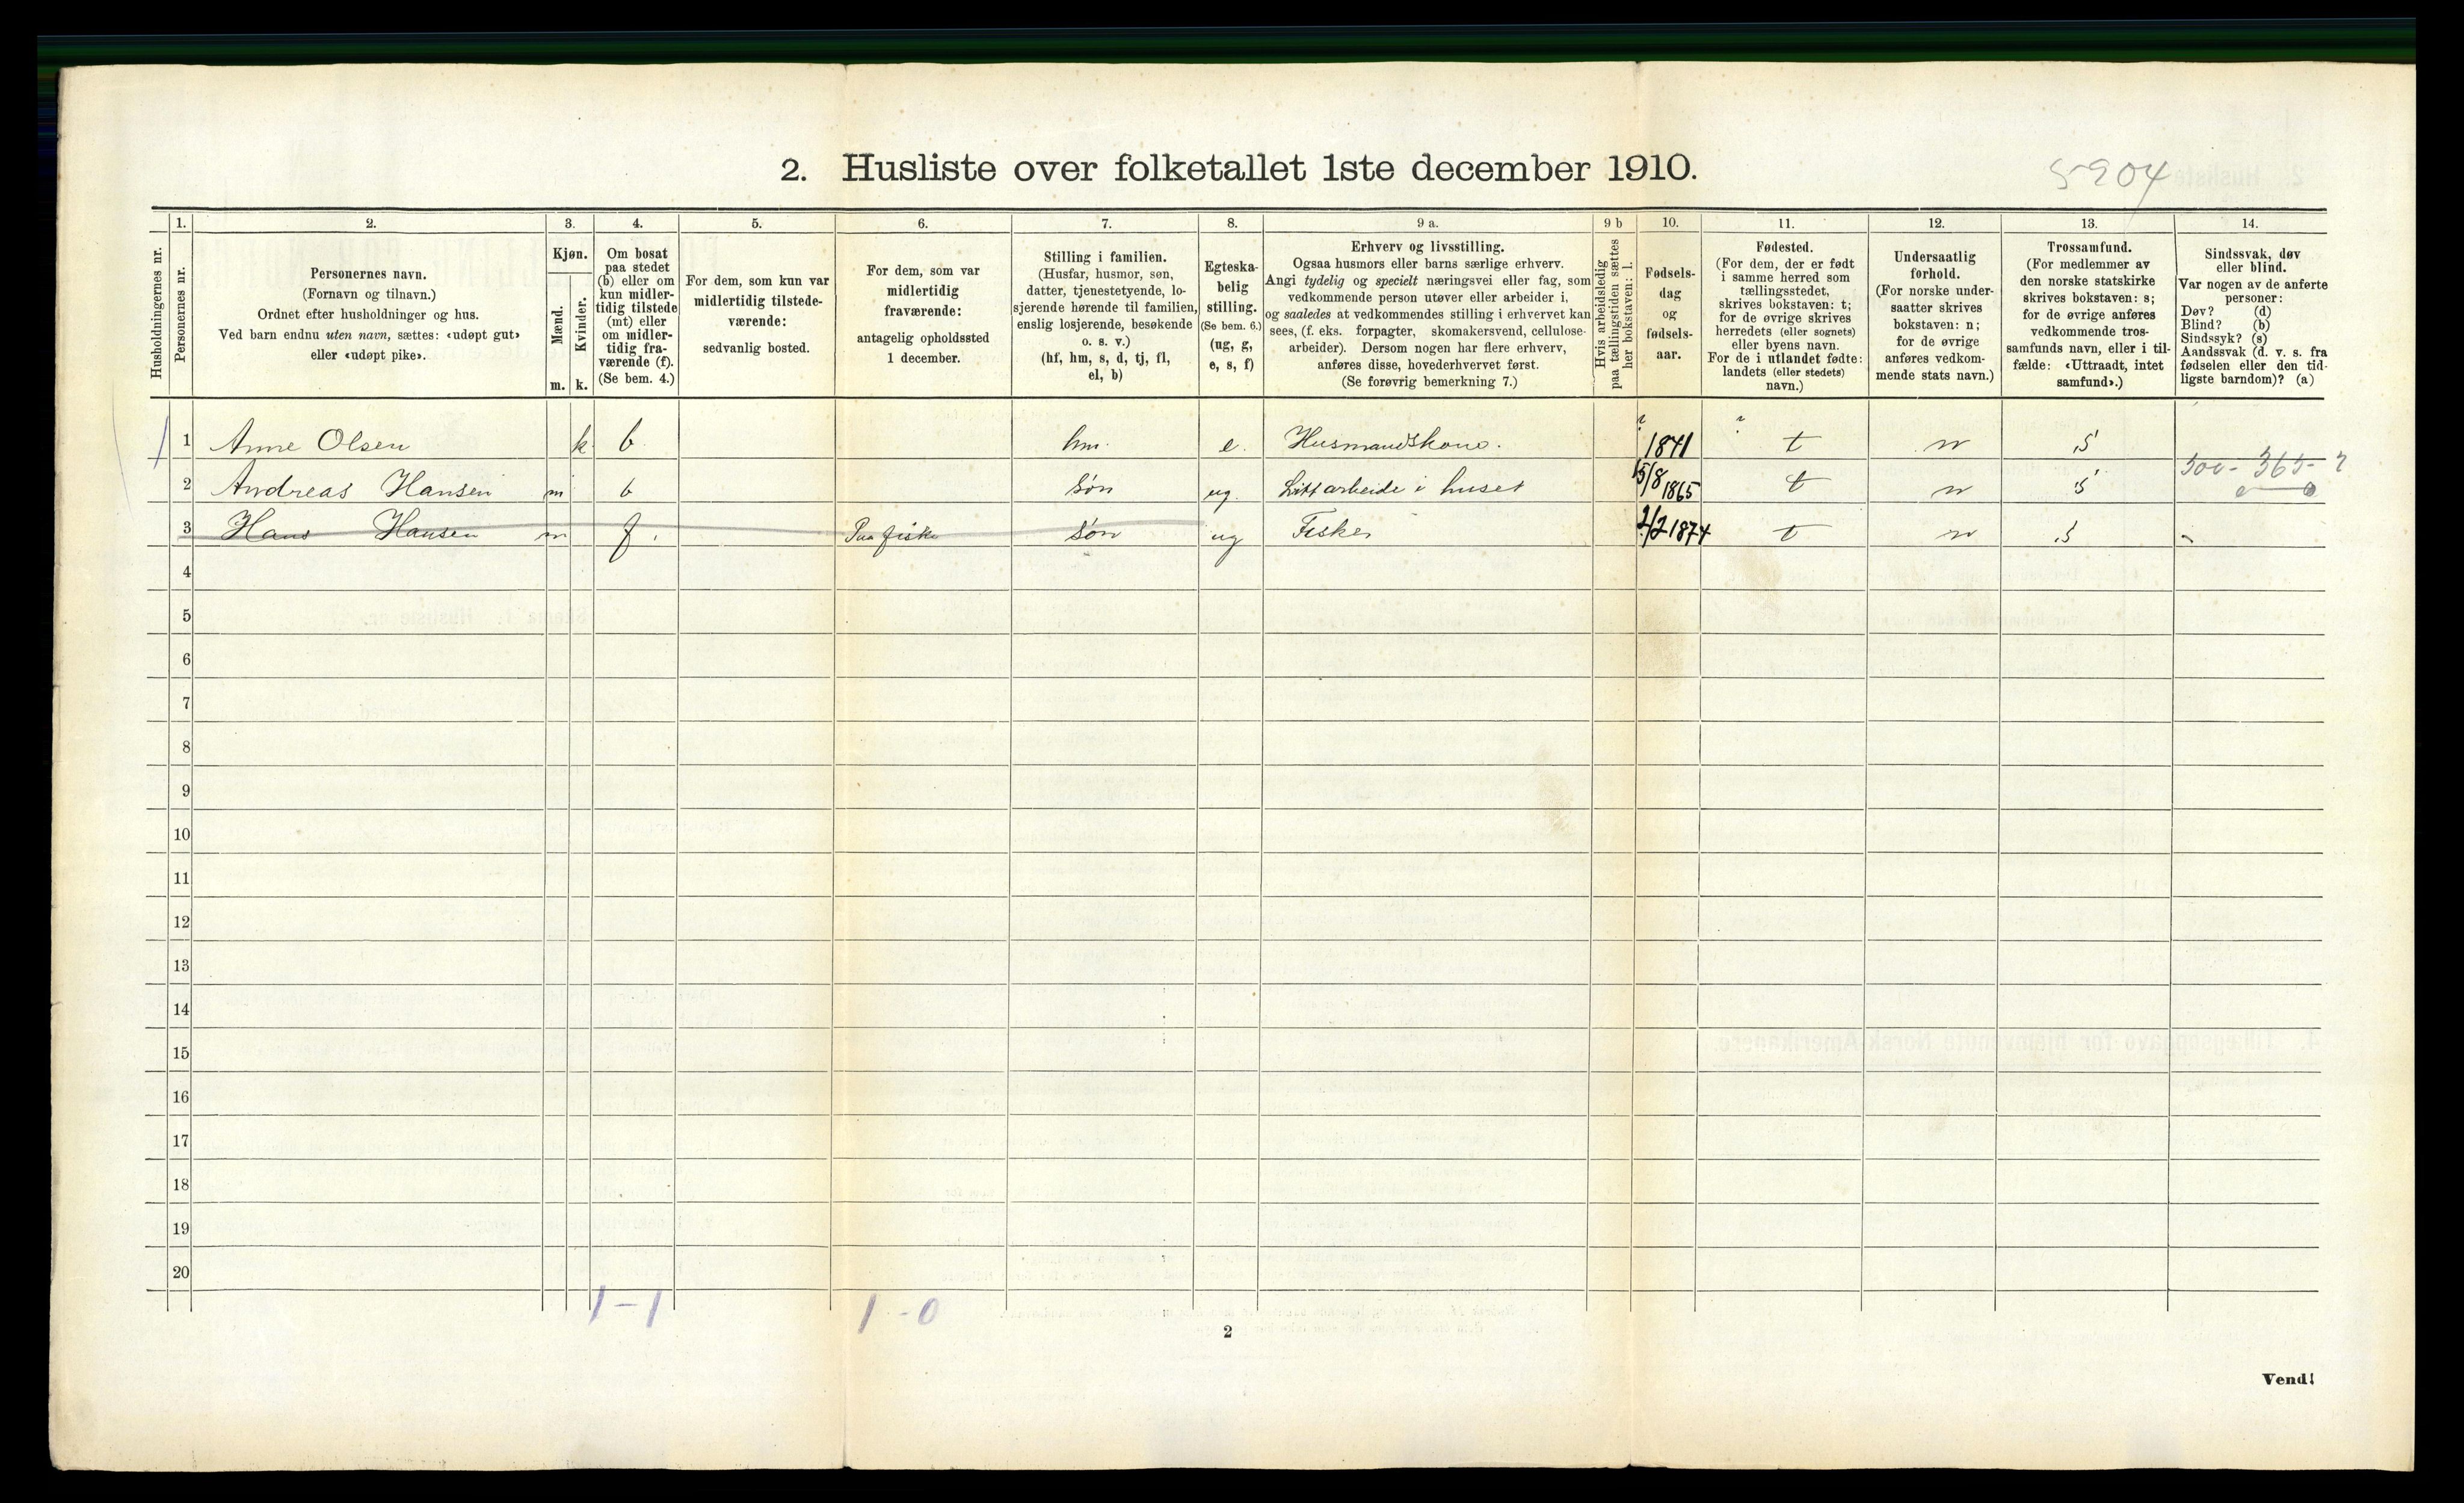 2. Husliste over folketallet 1ste december 1910.
5904
Husholdningernes nr.
1.
Personernes nr.
2.
Personernes navn.
(Fornavn og tilnavn.)
Ordnet efter husholdninger og hus.
Ved barn endnu uten navn, sættes: «udøpt gut»
eller «udøpt pike».
3.
Kjøn.
Mænd.
Kvinder.
m. k.
4.
Om bosat
paa stedet
(b) eller om
kun midler-
tidig tilstede
(mt) eller
om midler-
tidig fra-
værende (f).
(Se bem. 4.)
5.
For dem, som kun var
midlertidig tilstede-
værende:
sedvanlig bosted.
6.
For dem, som var
midlertidig
fraværende:
antagelig opholdssted
1 december.
7.
Stilling i familien.
(Husfar, husmor, søn,
datter, tjenestetyende, lo-
sjerende hørende til familien,
enslig losjerende, besøkende
o. s. v.)
(hf, hm, s, d, tj, fl,
el, b)
8.
Egteska-
belig
stilling.
(Se bem. 6.)
(ug, g,
e, s, f)
9 a.
Erhverv og livsstilling.
Ogsaa husmors eller barns særlige erhverv.
Angi tydelig og specielt næringsvei eller fag, som
vedkommende person utøver eller arbeider i,
og saaledes at vedkommendes stilling i erhvervet kan
sees, (f. eks. forpagter, skomakersvend, cellulose-
arbeider). Dersom nogen har flere erhverv,
anføres disse, hovederhvervet først.
(Se forøvrig bemerkning 7.)
9 b
Hvis arbeidsledig
paa tællingstiden sættes
her bokstaven: l.
10.
Fødsels-
dag
og
fødsels-
aar.
11.
Fødested.
(For dem, der er født
i samme herred som
tællingsstedet,
skrives bokstaven: t;
for de øvrige skrives
herredets (eller sognets)
eller byens navn.
For de i utlandet fødte:
landets (eller stedets)
navn.)
12.
Undersaatlig
forhold.
(For norske under-
saatter skrives
bokstaven: n;
for de øvrige
anføres vedkom-
mende stats navn.)
13.
Trossamfund.
(For medlemmer av
den norske statskirke
skrives bokstaven: s;
for de øvrige anføres
vedkommende tros-
samfunds navn, eller i til-
fælde: «Uttraadt, intet
samfund».)
14.
Sindssvak, døv
eller blind.
Var nogen av de anførte
personer:
Døv? (d)
Blind? (b)
Sindssyk? (s)
Aandssvak (d. v. s. fra
fødselen eller den tid-
ligste barndom)? (a)
1 Anne Olsen k. b. hm. e. Husmandskone. 1841 t n s
2 Andreas Hansen m b søn ug. Litt arbeide i huset 15/8 1865 t n s 500- 365-
3 Hans Hansen m f. Paa fiske søn ug Fisker 2/2 1874 t n s -
4
5
6
7
8
9
10
11
12
13
14
15
16
17
18
19
20
1-1 1-0
2
Vend!